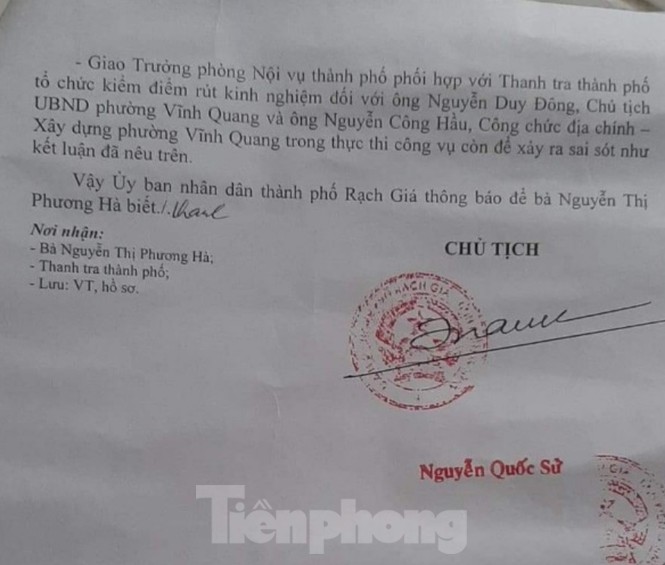 - Giao Trưởng phòng Nội vụ thành phố phối hợp với Thanh tra thành phố
tổ chức kiểm điểm rút kinh nghiệm đối với ông Nguyễn Duy Đông, Chủ tịch
UBND phường Vĩnh Quang và ông Nguyễn Công Hầu, Công chức địa chính –
Xây dựng phường Vĩnh Quang trong thực thi công vụ còn để xảy ra sai sót như
kết luận đã nêu trên.
Vậy Ủy ban nhân dân thành phố Rạch Giá thông báo để bà Nguyễn Thị
Phương Hà biết./.
Nơi nhận:
- Bà Nguyễn Thị Phương Hà;
- Thanh tra thành phố;
- Lưu: VT, hồ sơ.
CHỦ TỊCH
RẠCH GIÁ
Nguyễn Quốc Sử
Tiềnphong